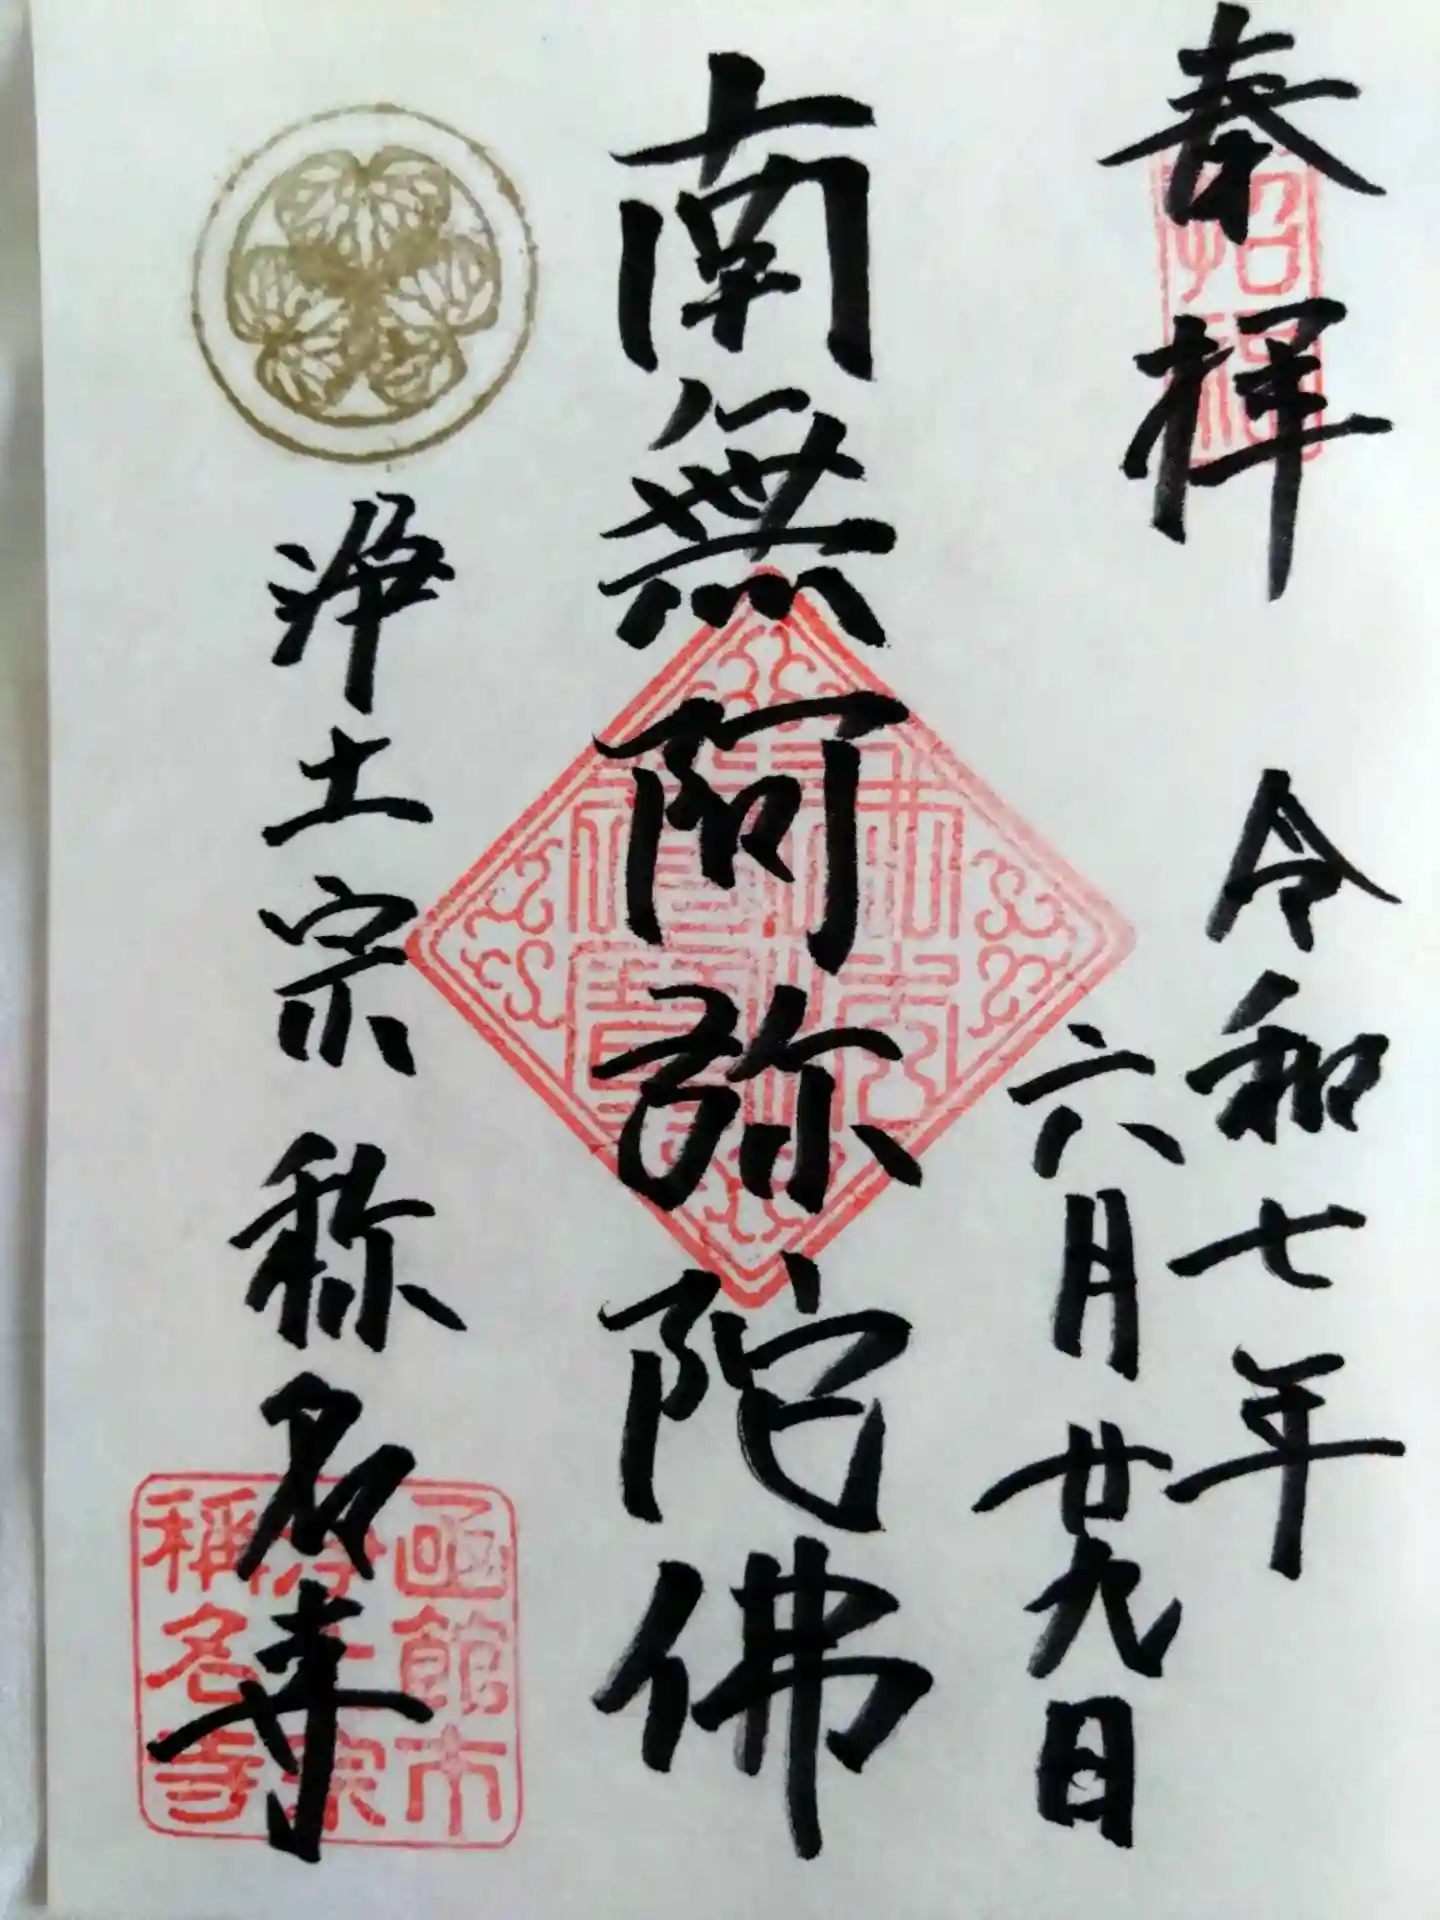 奉拝
招福
令和七年
六月廿九日
南無阿弥陀佛
浄土宗 称名寺
函館市
浄土宗
稱名寺